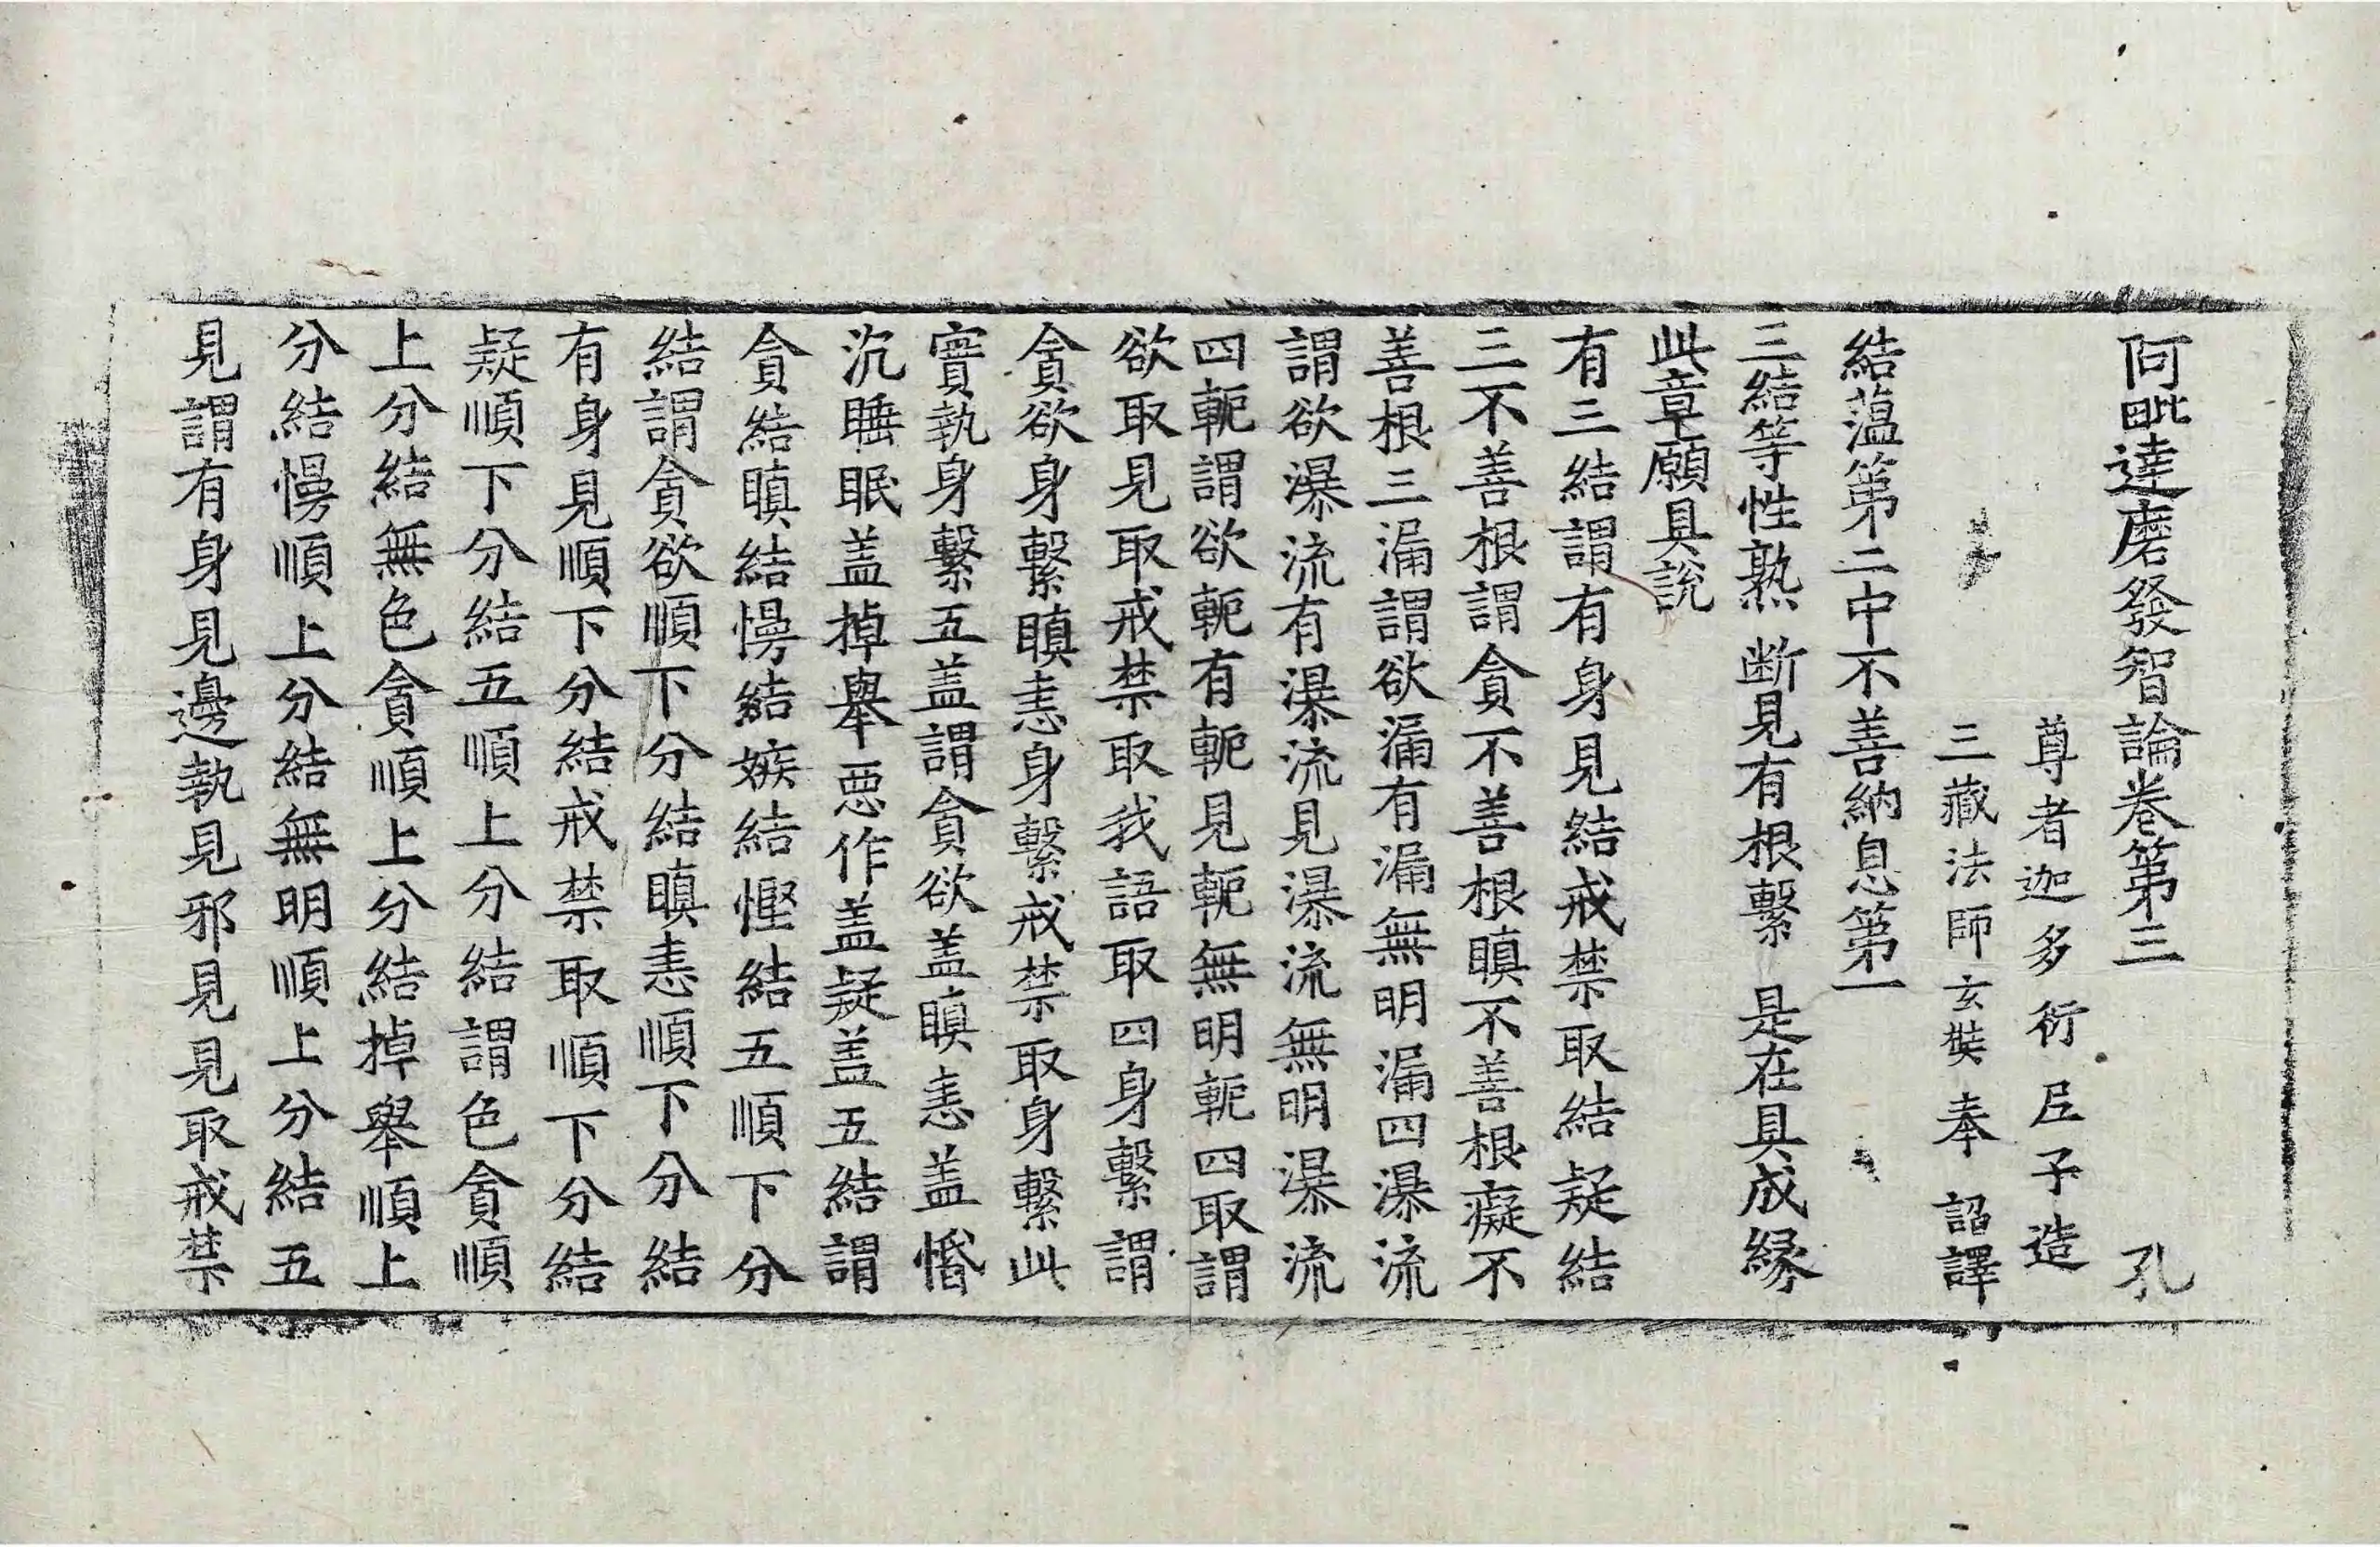 阿毗達磨發智論卷第三 孔
尊者迦多衍尼子造
三藏法師玄奘奉 詔譯
結蘊第二中不善納息第一
三結等性熟 断見有根繫 是在具成縁
此章願具說
有三結謂有身見結戒禁取結疑結
三不善根謂貪不善根瞋不善根癡不
善根三漏謂欲漏有漏無明漏四瀑流
謂欲瀑流有瀑流見瀑流無明瀑流
四軛謂欲軛有軛見軛無明軛四取謂
欲取見取戒禁取我語取四身繫謂
貪欲身繫瞋恚身繫戒禁取身繫此
實執身繫五盖謂貪欲盖瞋恚盖惛
沉睡眠盖掉舉惡作盖疑盖五結謂
貪結瞋結慢結嫉結慳結五順下分
結謂貪欲順下分結瞋恚順下分結
有身見順下分結戒禁取順下分結
疑順下分結五順上分結謂色貪順
上分結無色貪順上分結掉舉順上
分結慢順上分結無明順上分結五
見謂有身見邊執見邪見見取戒禁